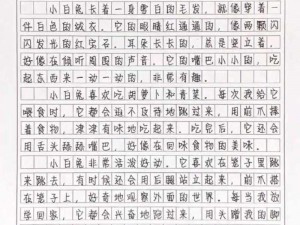 小白兔长着一身雪白的毛发，就像穿着一
件白色的绒衣。它的眼睛红通通的，像两颗闪
闪发光的红宝石。耳朵长长的，总是竖立着，
好像在倾听周围的声音。它的嘴巴小小的，吃
起东西来一动一动的，非常有趣。
小白兔喜欢吃胡萝卜和青菜。每次我给它
喂食时，它都会迫不及待地跳过来，用前爪捧
着食物，津津有味地吃起来。吃完后，它还会
用舌头舔舔嘴巴，好像在回味食物的美味。
小白兔非常活泼好动。它喜欢在笼子里跳
来跳去，有时候还会用后腿站立起来，前爪搭
在笼子上，好奇地观察外面的世界。每当我放
学回家，它都会兴奋地跑过来，用头蹭我的脚